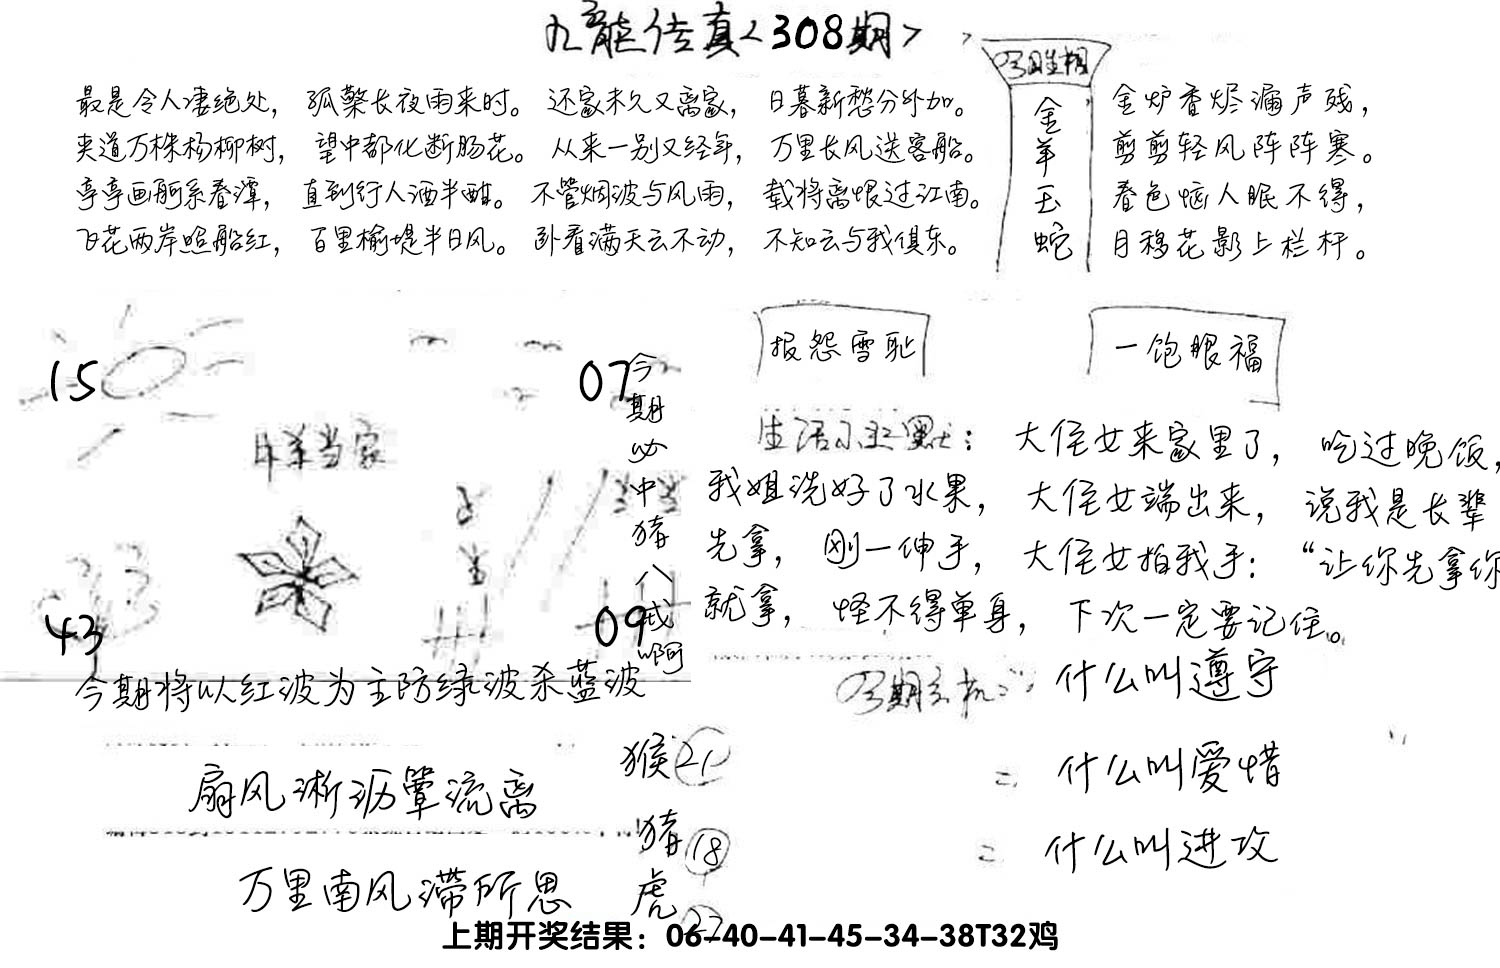 九龙传真<308期>
最是令人凄绝处，孤檠长夜雨来时。还家未久又离家，日暮新愁分外加。
夹道万株杨柳树，望中都化断肠花。从来一别又经年，万里长风送客船。
亭亭画舸系春潭，直到行人酒半酣。不管烟波与风雨，载将离恨过江南。
飞花两岸照船红，百里榆堤半日风。卧看满天云不动，不知云与我俱东。
今期生相
金羊玉蛇
金炉香烬漏声残，
剪剪轻风阵阵寒。
春色恼人眠不得，
月移花影上栏杆。
15
07
羊当家
43
09
今期必中猪八戒啊
今期将以红波为主防绿波杀蓝波
报怨雪耻
一饱眼福
生活小幽默：大侄女来家里了，吃过晚饭，
我姐洗好了水果，大侄女端出来，说我是长辈
先拿，刚一伸手，大侄女拍我手：“让你先拿你
就拿，怪不得单身，下次一定要记住。
今期玄机：什么叫遵守
二 什么叫爱惜
二 什么叫进攻
扇风淅沥簟流离
万里南风滞所思
猴21
猪18
虎
上期开奖结果：06-40-41-45-34-38T32鸡